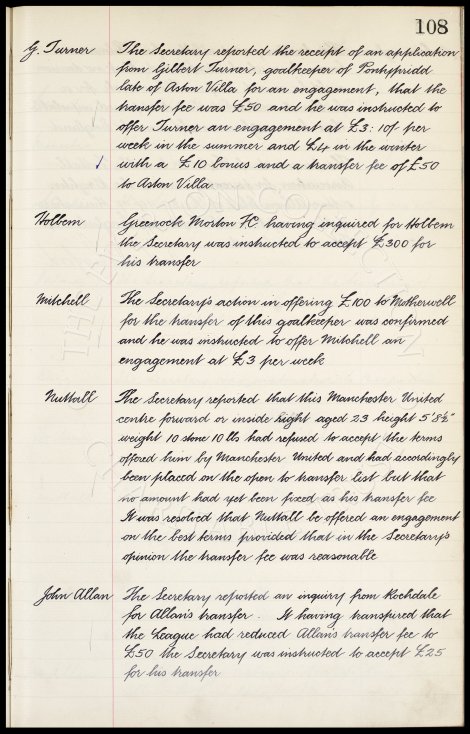 108
G. Turner The Secretary reported the receipt of an application
from Gilbert Turner, goalkeeper of Pontypridd
late of Aston Villa for an engagement, that the
transfer fee was £50 and he was instructed to
offer Turner an engagement at £3:10/ per
week in the summer and £4 in the winter
with a £10 bonus and a transfer fee of £50
to Aston Villa
Holbem Greenock Morton FC having inquired for Holbem
the Secretary was instructed to accept £300 for
his transfer
Mitchell The Secretary's action in offering £100 to Motherwell
for the transfer of this goalkeeper was confirmed
and he was instructed to offer Mitchell an
engagement at £3 per week
Nuttall The Secretary reported that this Manchester United
centre forward or inside right aged 23 height 5' 8½"
weight 10 stone 10 lbs had refused to accept the terms
offered him by Manchester United and had accordingly
been placed on the open to transfer list but that
no amount had yet been fixed as his transfer fee
It was resolved that Nuttall be offered an engagement
on the best terms provided that in the Secretary's
opinion the transfer fee was reasonable
John Allan The Secretary reported an inquiry from Rochdale
for Allan's transfer. It having transpired that
the League had reduced Allan's transfer fee to
£50 the Secretary was instructed to accept £25
for his transfer